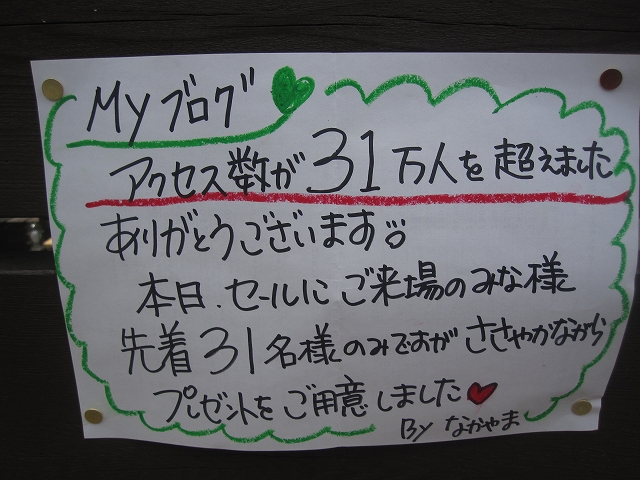 Myブログ
アクセス数が31万人を超えました
ありがとうございます
本日、セールにご来場のみな様
先着31名様のみですがささやかながら
プレゼントをご用意しました
By なかやま